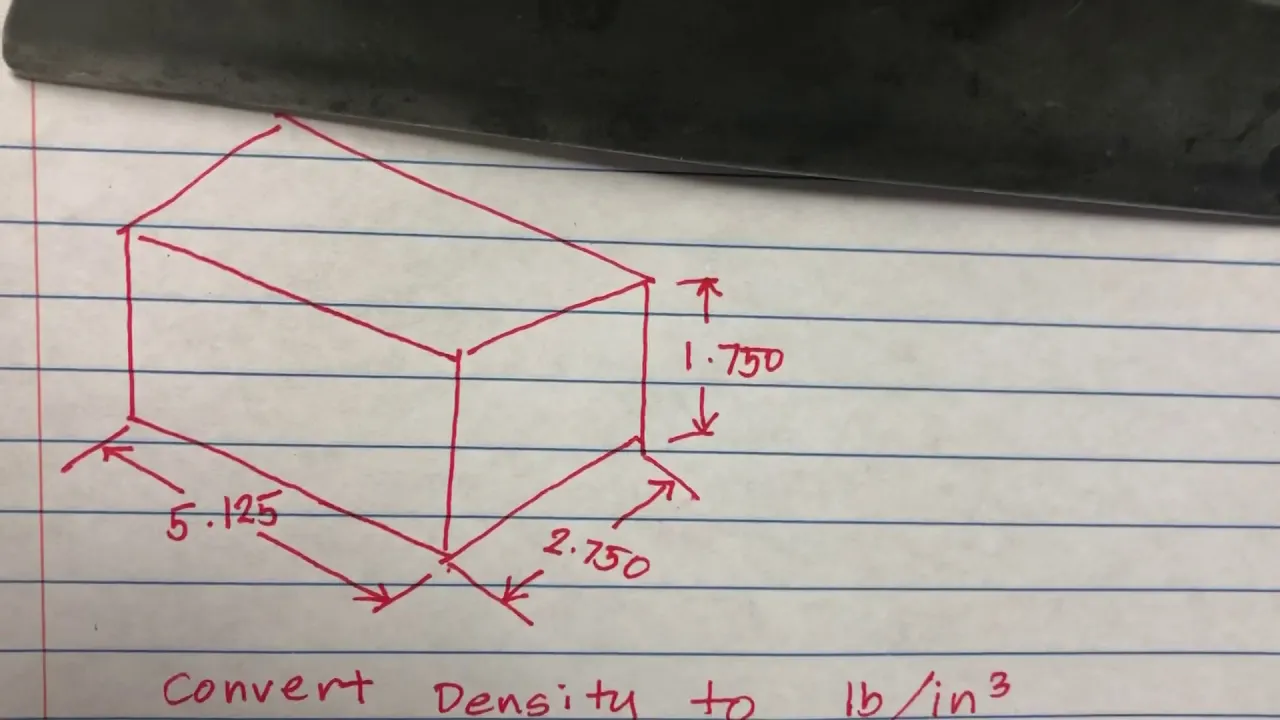 1.750
5.125
2.750
Convert Density to lb/in³